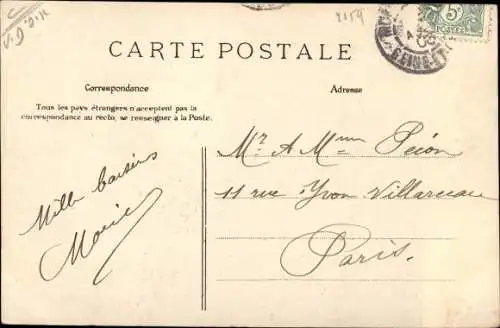 2159
5c
POSTES
CARTE POSTALE
Correspondance
Adresse
Tous les pays étrangers n'acceptent pas la
correspondance au recto, se renseigner à la Poste.
Mr A Mme Péion
11 rue Yvon Villarceau
Paris.
Mille baisers
Marie